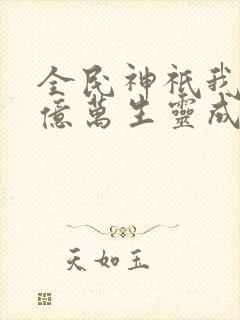 全民神祇我
億萬生靈成
天如玉